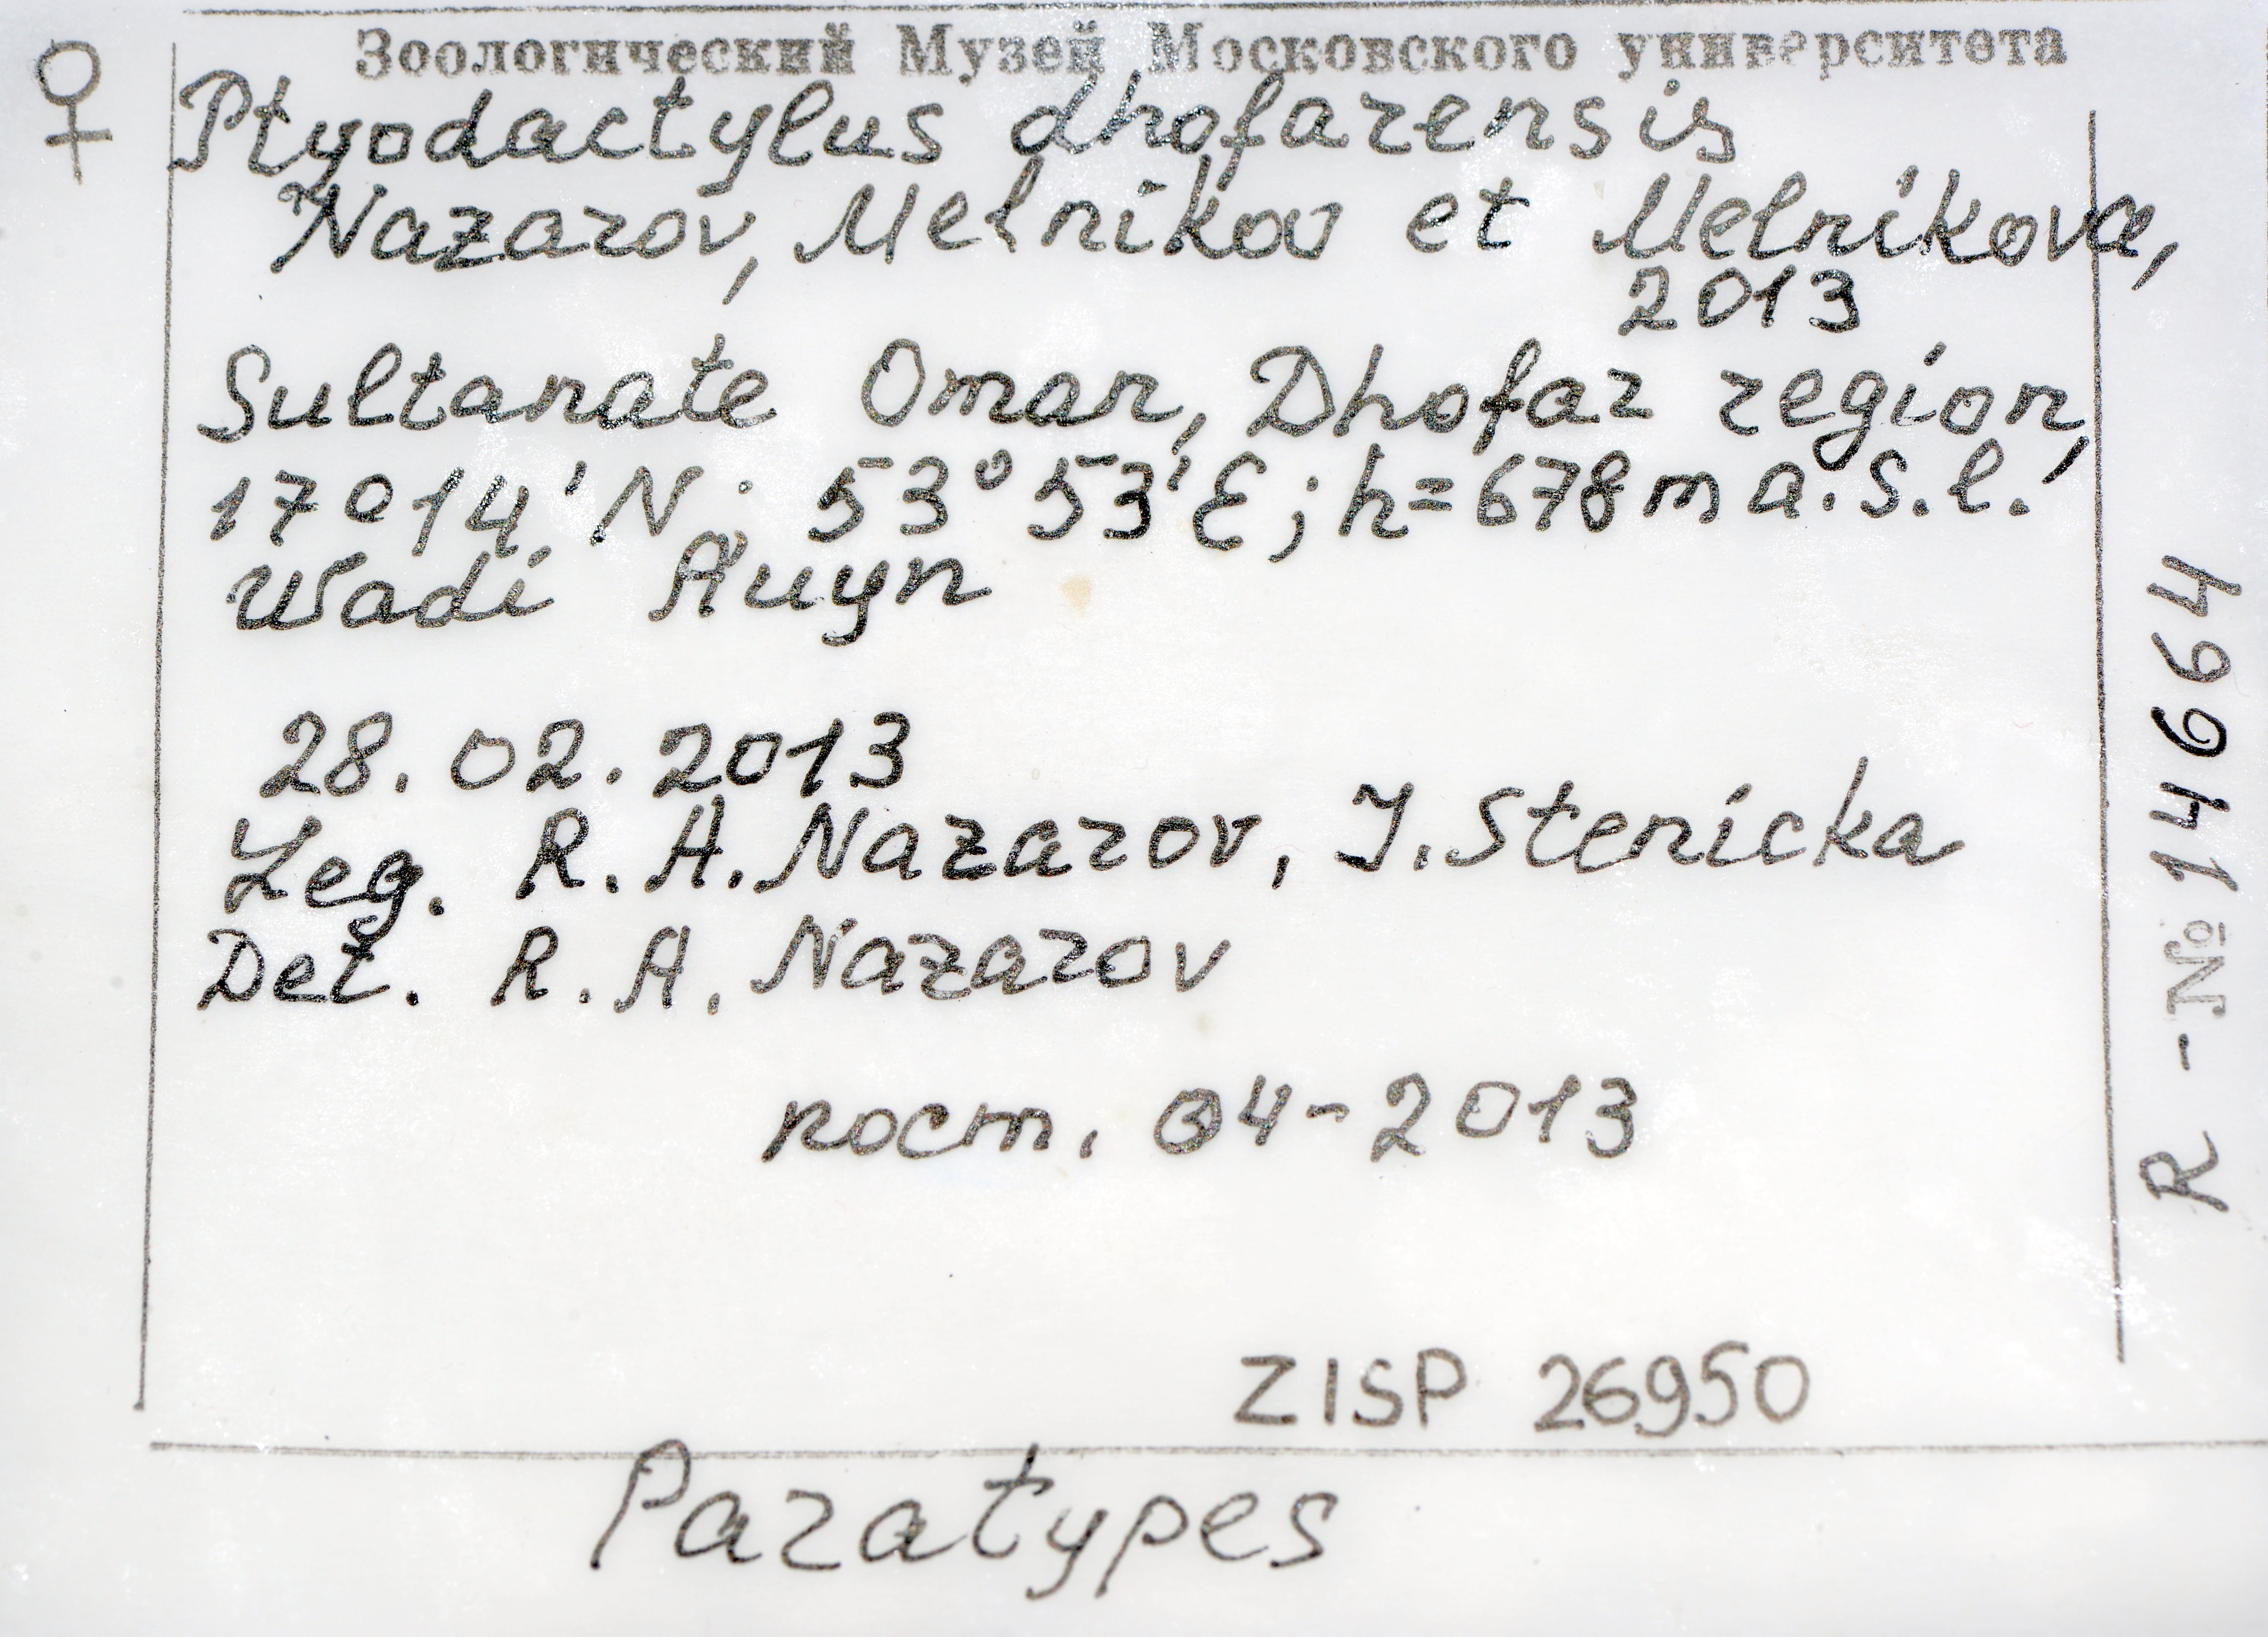 Зоологический Музей Московского университета
♀
Ptyodactylus dhofarensis
Nazarov, Melnikov et Melnikova,
2013
Sultanate Oman, Dhofar region,
17°14'N; 53°53'E; h=678m a.s.l.
Wadi Auyn
28.02.2013
Leg. R.A. Nazarov, J. Stenicka
Det. R.A. Nazarov
пост. 04-2013
ZISP 26950
Paratypes
R-№ 14664